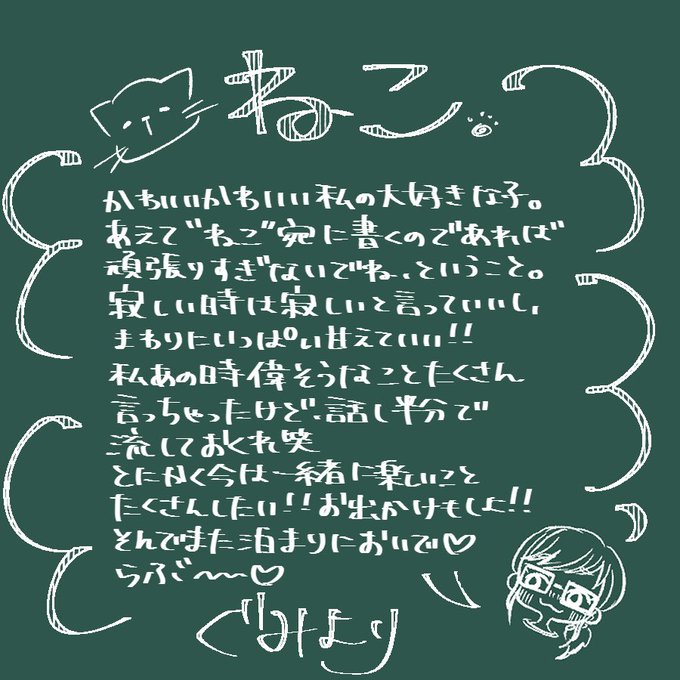 ねこ。
かわいいかわいい私の大好きな子。
あえて"ねこ"宛に書くのであれば
頑張りすぎないでね、ということ。
寂しい時は寂しいと言っていいし、
まわりにいっぱい甘えていい!!
私あの時偉そうなことたくさん
言っちゃったけど、話し半分で
流しておくれ笑
とにかく今は一緒に楽しいこと
たくさんしたい!!お出かけもしよ!!
そんでまた泊まりにおいで♡
らぶ〜〜♡
ぐみより